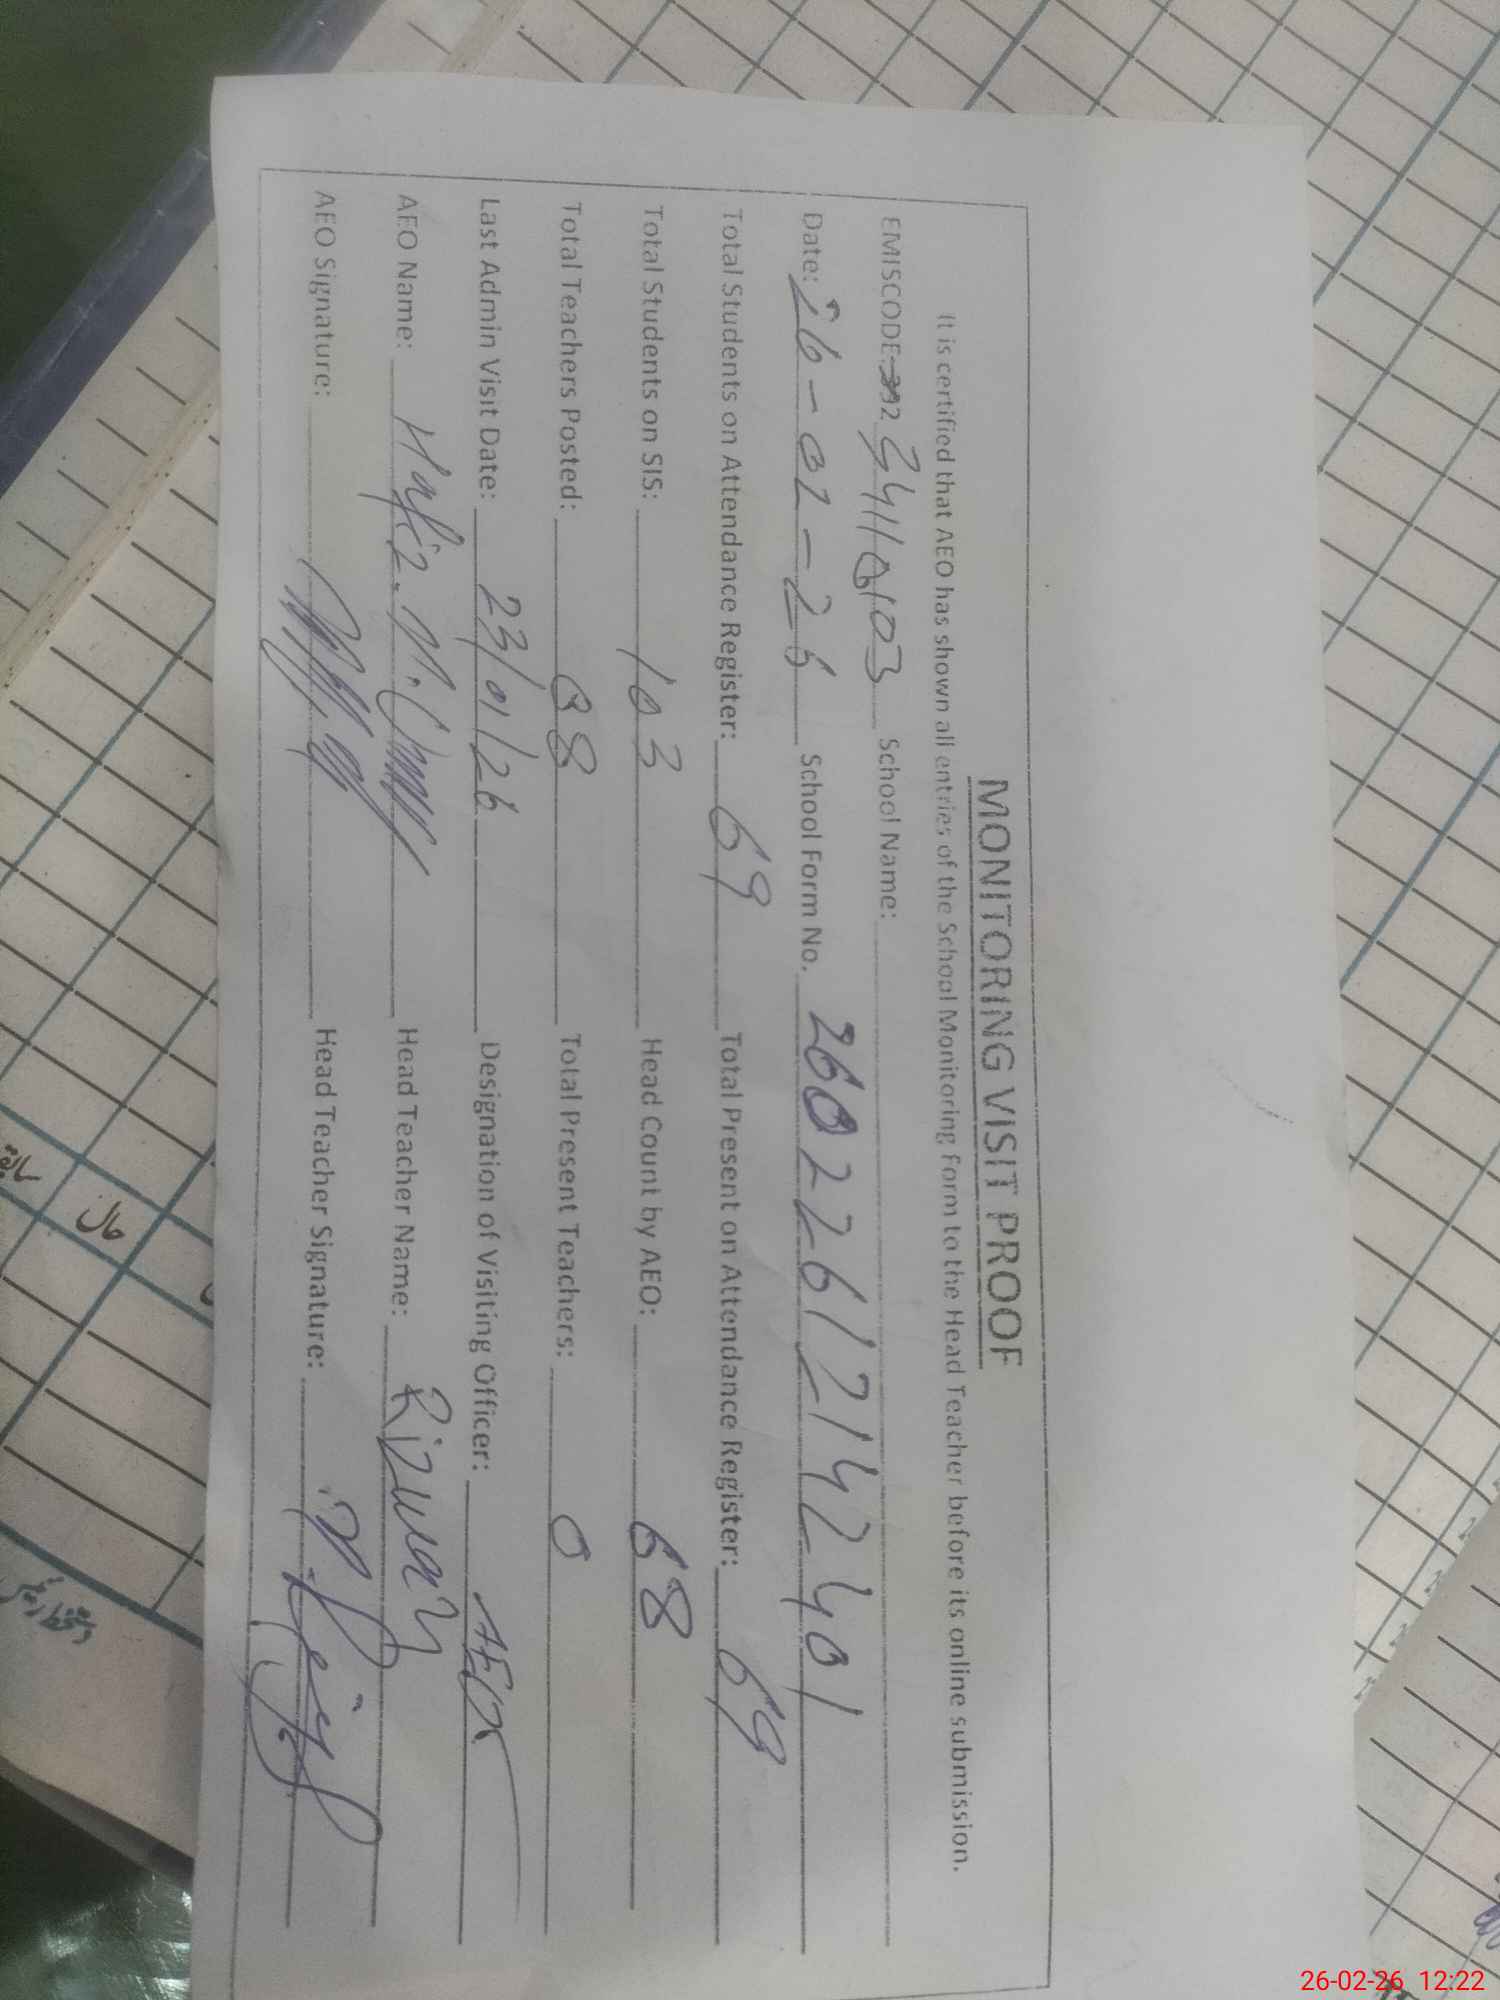 MONITORING VISIT PROOF
It is certified that AEO has shown all entries of the School Monitoring Form to the Head Teacher before its online submission.
EMISCODE: 34110103 School Name:
Date: 26-02-26 School Form No. 26022612142401
Total Students on Attendance Register: 69 Total Present on Attendance Register: 69
Total Students on SIS: 103 Head Count by AEO: 68
Total Teachers Posted: 08 Total Present Teachers: 0
Last Admin Visit Date: 23/01/26 Designation of Visiting Officer: AEO
AEO Name: Hafiz. M. Head Teacher Name: Rizwan
AEO Signature: Head Teacher Signature:
سابقہ
حال
26-02-26 12:22